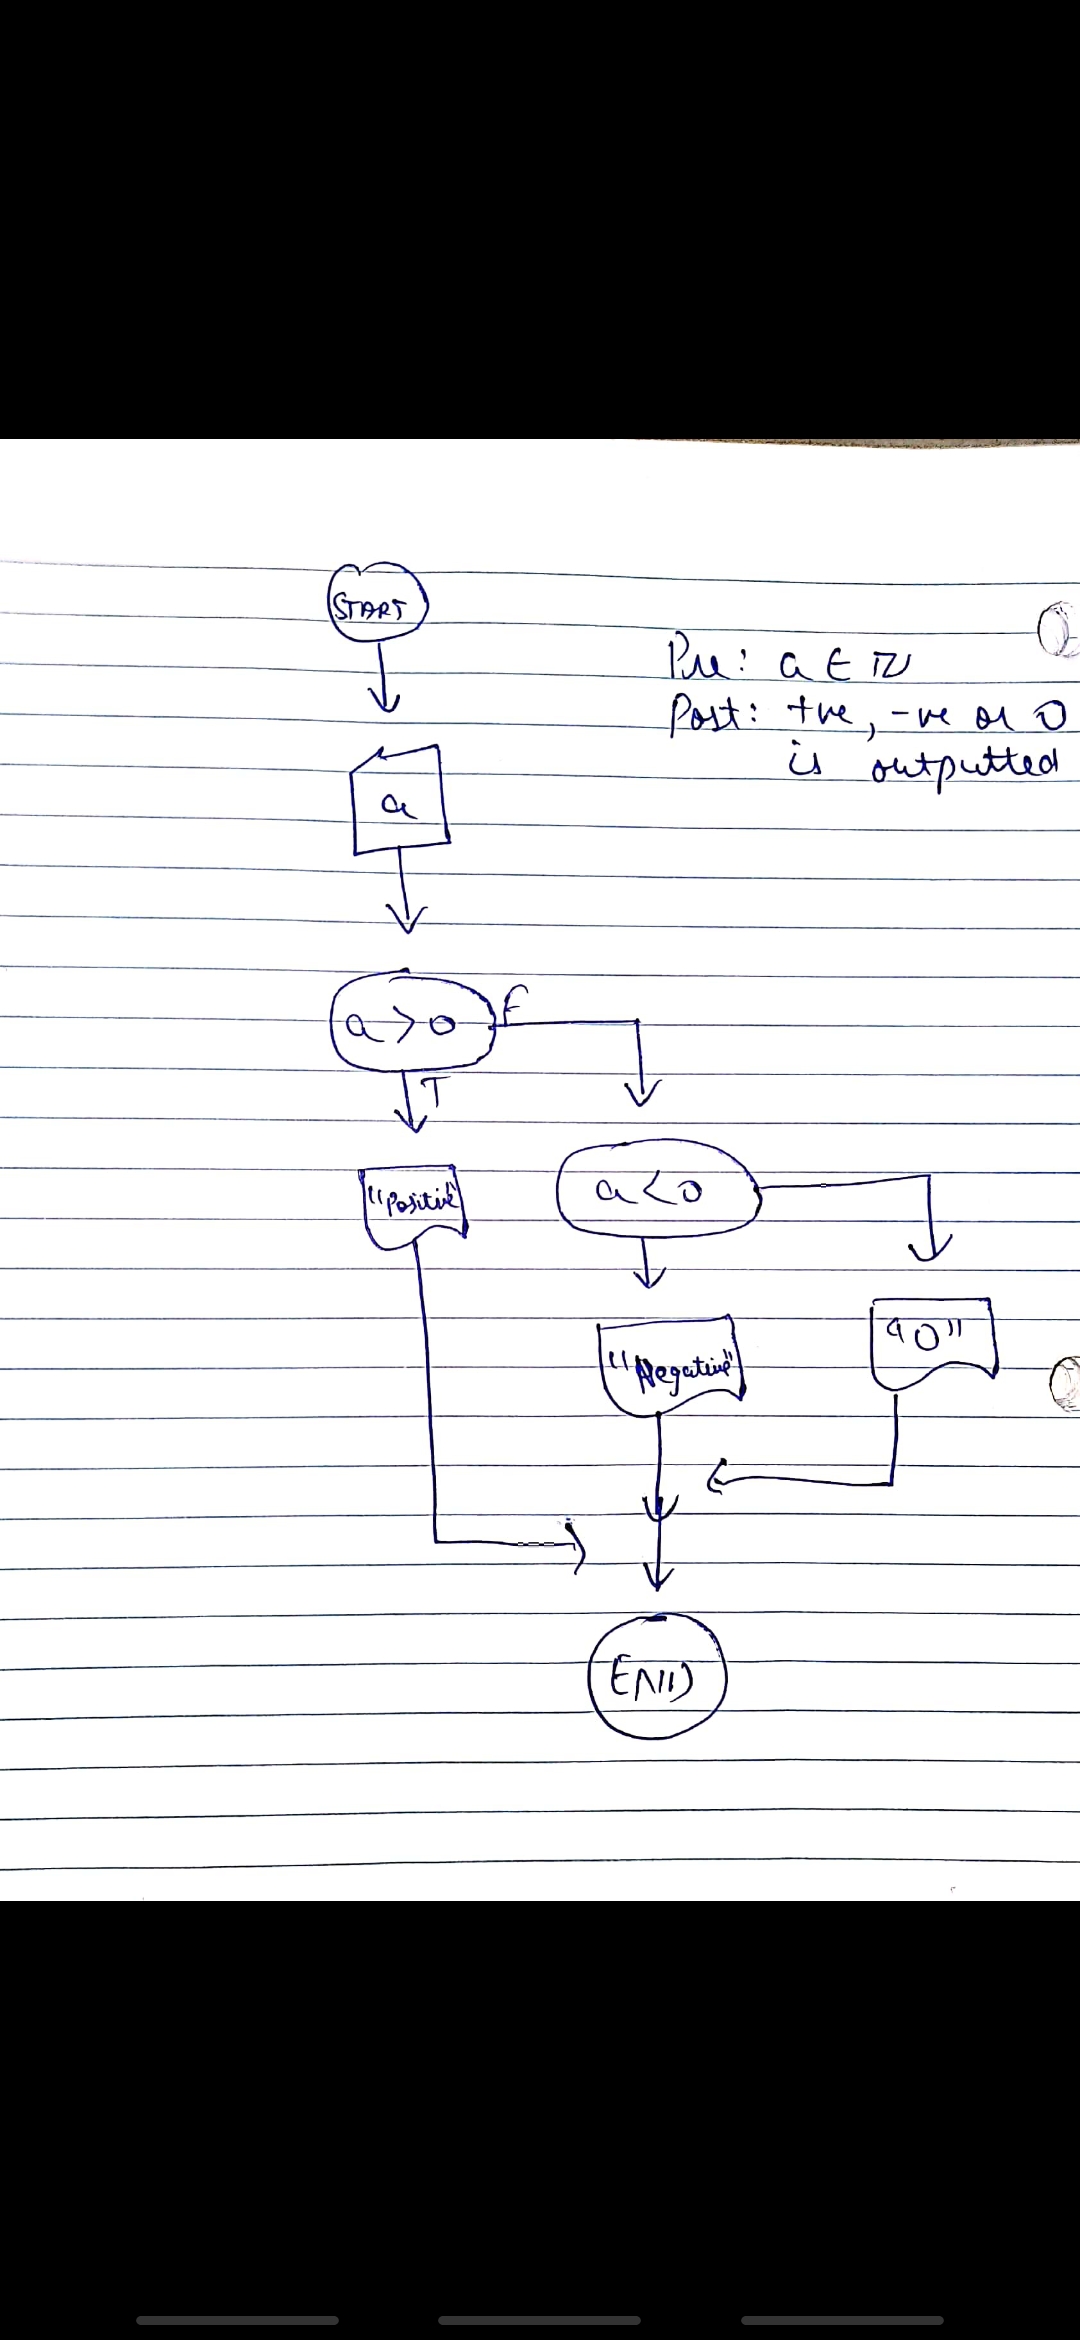 START
Pre: a ∈ ℤ
Post: +ve, -ve or 0
is outputted
a
a > 0
F
T
"Positive"
a < 0
"Negative"
"0"
END